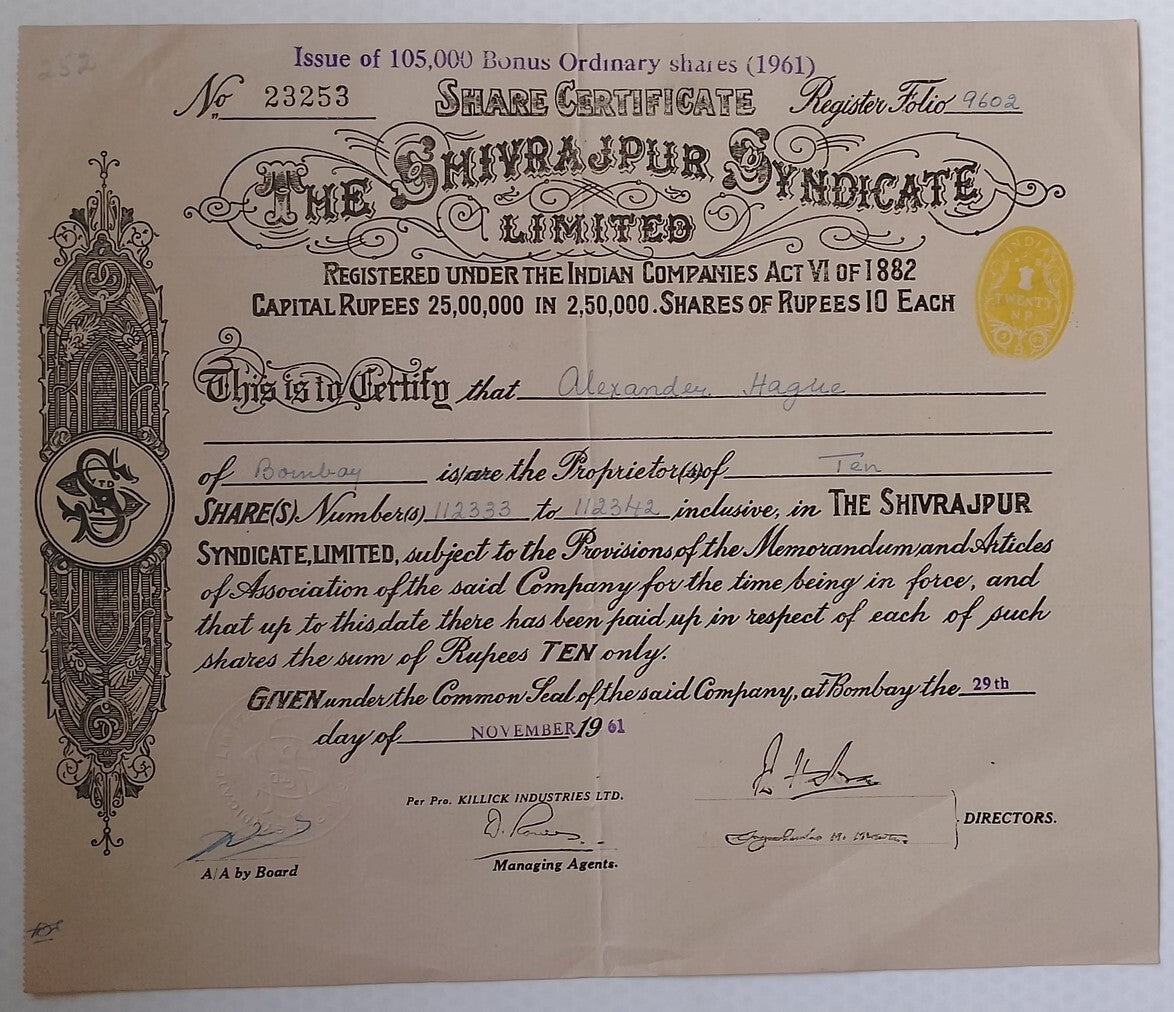 252
Issue of 105,000 Bonus Ordinary shares (1961)
No 23253 SHARE CERTIFICATE Register Folio 9602
THE SHIVRAJPUR SYNDICATE
LIMITED
REGISTERED UNDER THE INDIAN COMPANIES ACT VI OF 1882
CAPITAL RUPEES 25,00,000 IN 2,50,000. SHARES OF RUPEES 10 EACH
INDIA
TWENTY
N.P.
This is to Certify that Alexander Hague
of Bombay is/are the Proprietor(s) of Ten
SHARE(S) Number(s) 112333 to 112342 inclusive, in THE SHIVRAJPUR
SYNDICATE, LIMITED, subject to the Provisions of the Memorandum and Articles
of Association of the said Company for the time being in force, and
that up to this date there has been paid up in respect of each of such
shares the sum of Rupees TEN only.
GIVEN under the Common Seal of the said Company, at Bombay the 29th
day of NOVEMBER 1961
Per Pro. KILLICK INDUSTRIES LTD.
DIRECTORS.
A/A by Board
Managing Agents.